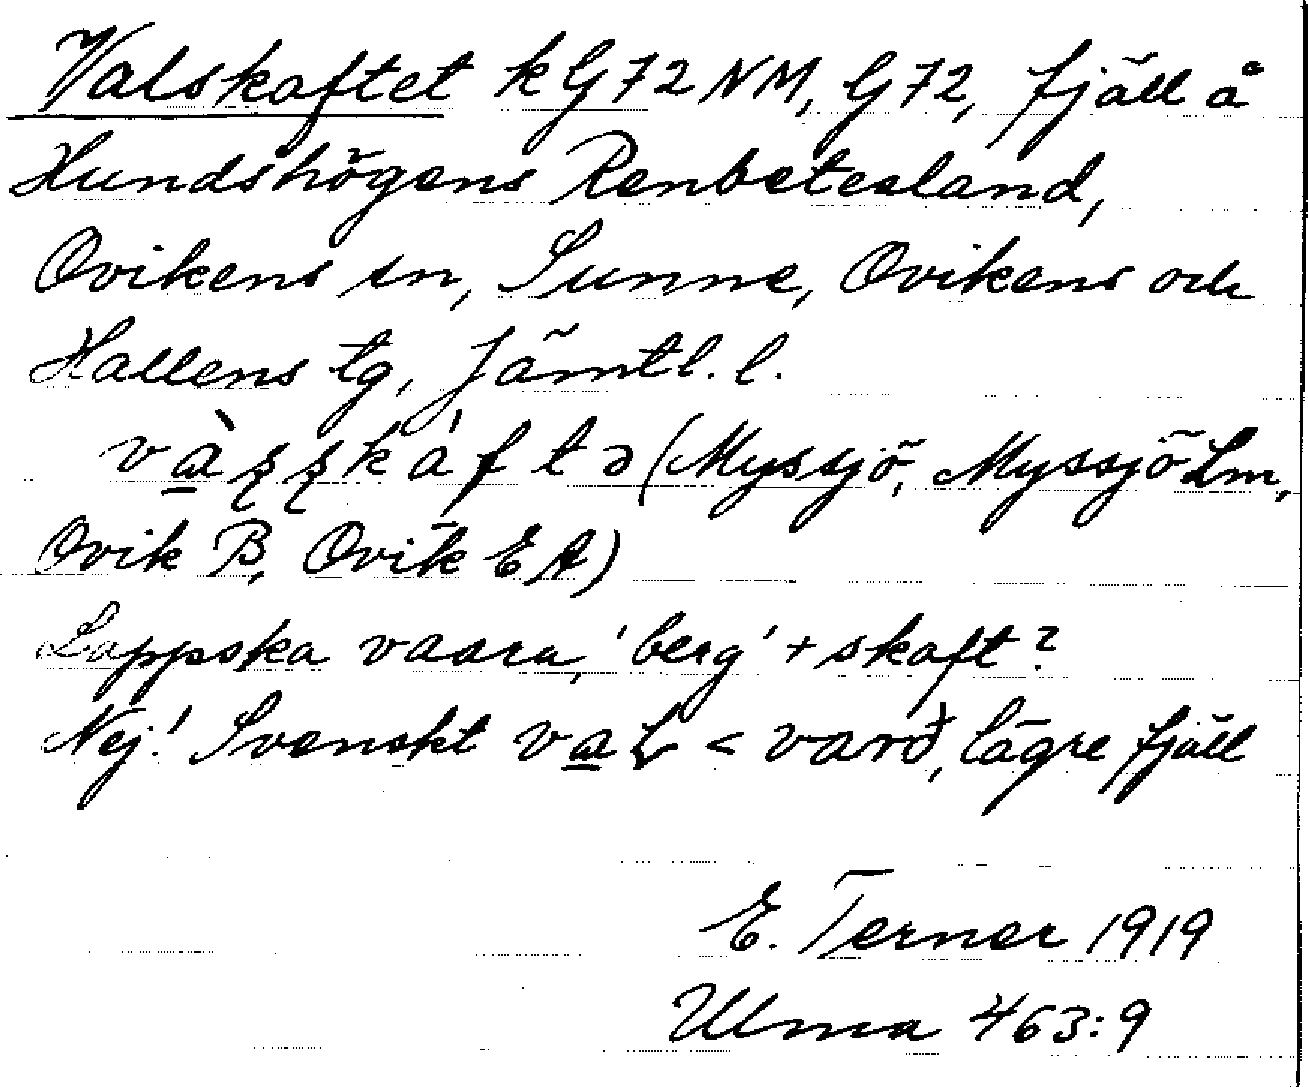 Valskaftet kG72NM, G72, fjäll å
Hundshögens Renbetesland,
Ovikens sn, Sunne, Ovikens och
Hallens tg, Jämtl. l.
và̱ʂʂkàftə (Myssjö, MyssjöLm,
Ovik B, Ovik EA)
Lappska vaara, 'berg' + skaft?
Nej! Svenskt va̱ɽ < varð, lägre fjäll
E. Terner 1919
Ulma 463:9